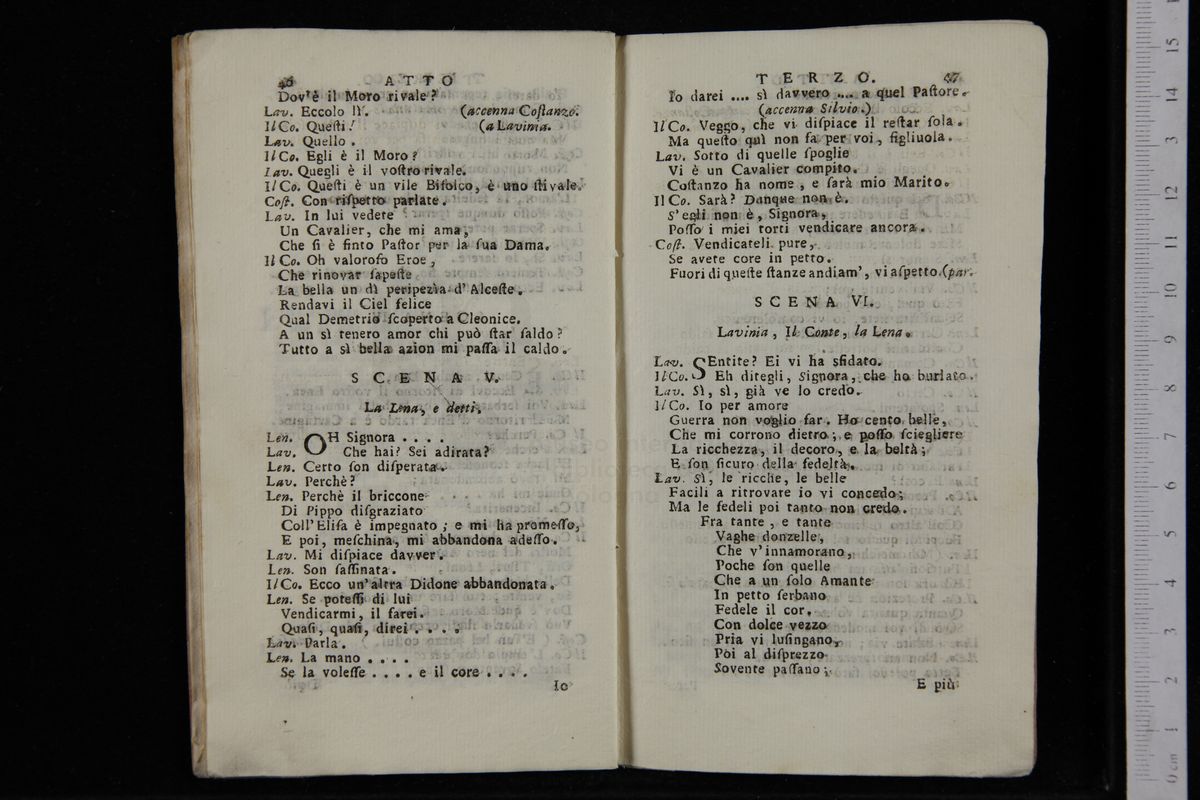 46 ATTO
Dov'è il Moro rivale?
Lav. Eccolo lì. (accenna Costanzo.
Il Co. Questi! (a Lavinia.
Lav. Quello.
Il Co. Egli è il Moro?
Lav. Quegli è il vostro rivale.
Il Co. Questi è un vile Bifolco, è uno stivale.
Cost. Con rispetto parlate.
Lav. In lui vedete
Un Cavalier, che mi ama,
Che si è finto Pastor per la sua Dama.
Il Co. Oh valoroso Eroe,
Che rinovar sapeste
La bella un dì peripezìa d'Alceste.
Rendavi il Ciel felice
Qual Demetrio scoperto a Cleonice.
A un sì tenero amor chi può star saldo?
Tutto a sì bella azion mi passa il caldo.
SCENA V.
La Lena, e detti.
Len. OH Signora ....
Lav. Che hai? Sei adirata?
Len. Certo son disperata.
Lav. Perchè?
Len. Perchè il briccone
Di Pippo disgraziato
Coll'Elisa è impegnato; e mi ha promesso,
E poi, meschina, mi abbandona adesso.
Lav. Mi dispiace davver.
Len. Son sassinata.
Il Co. Ecco un'altra Didone abbandonata.
Len. Se potessi di lui
Vendicarmi, il farei.
Quasi, quasi, direi ....
Lav. Parla.
Len. La mano ....
Se la volesse .... e il core ....
Io
TERZO. 47
Io darei .... sì davvero .... a quel Pastore.
(accenna Silvio.)
Il Co. Veggo, che vi dispiace il restar sola.
Ma questo quì non fa per voi, figliuola.
Lav. Sotto di quelle spoglie
Vi è un Cavalier compito.
Costanzo ha nome, e sarà mio Marito.
Il Co. Sarà? Dunque non è.
S'egli non è, Signora,
Posso i miei torti vendicare ancora.
Cost. Vendicateli pure,
Se avete core in petto.
Fuori di queste stanze andiam', vi aspetto. (par.
SCENA VI.
Lavinia, Il Conte, la Lena.
Lav. SEntite? Ei vi ha sfidato.
Il Co. Eh ditegli, Signora, che ho burlato.
Lav. Sì, sì, già ve lo credo.
Il Co. Io per amore
Guerra non voglio far. Ho cento belle,
Che mi corrono dietro; e posso sciegliere
La ricchezza, il decoro, e la beltà;
E son sicuro della fedeltà.
Lav. Sì, le ricche, le belle
Facili a ritrovare io vi concedo;
Ma le fedeli poi tanto non credo.
Fra tante, e tante
Vaghe donzelle,
Che v'innamorano,
Poche son quelle
Che a un solo Amante
In petto serbano
Fedele il cor.
Con dolce vezzo
Pria vi lusingano,
Poi al disprezzo
Sovente passano;
E più